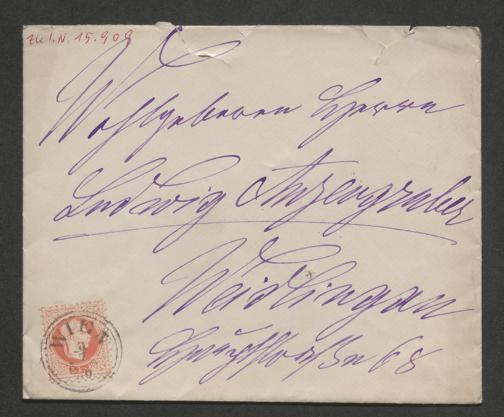 Zu I.N. 15.909
Wohlgeboren Herrn
Ludwig Anzengruber
Weidlingau
Hauptstraße 68
WIEN